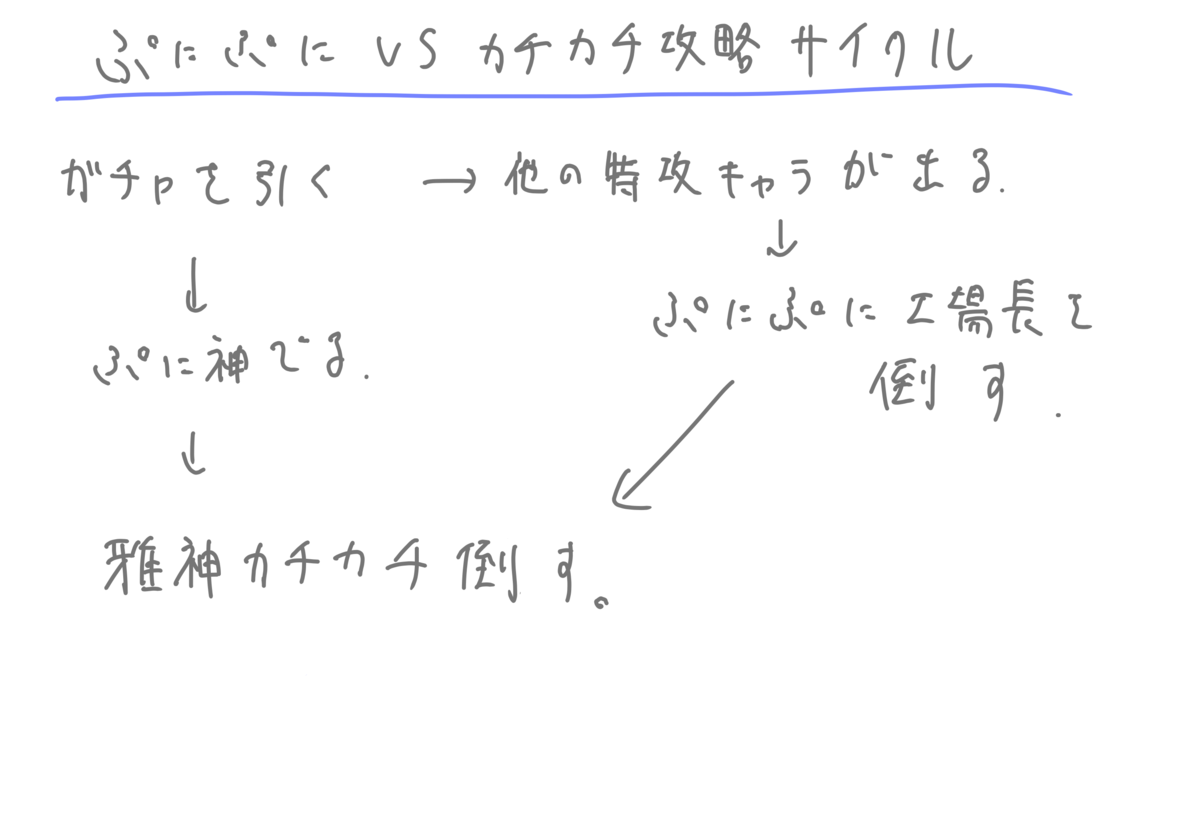 ぷにぷに VS カチカチ攻略サイクル
ガチャを引く → 他の特攻キャラが出る.
↓ ↓
ぷにぷに工場長を
ぷに神でる.
倒す.
↓ ↙
雅神カチカチ倒す。